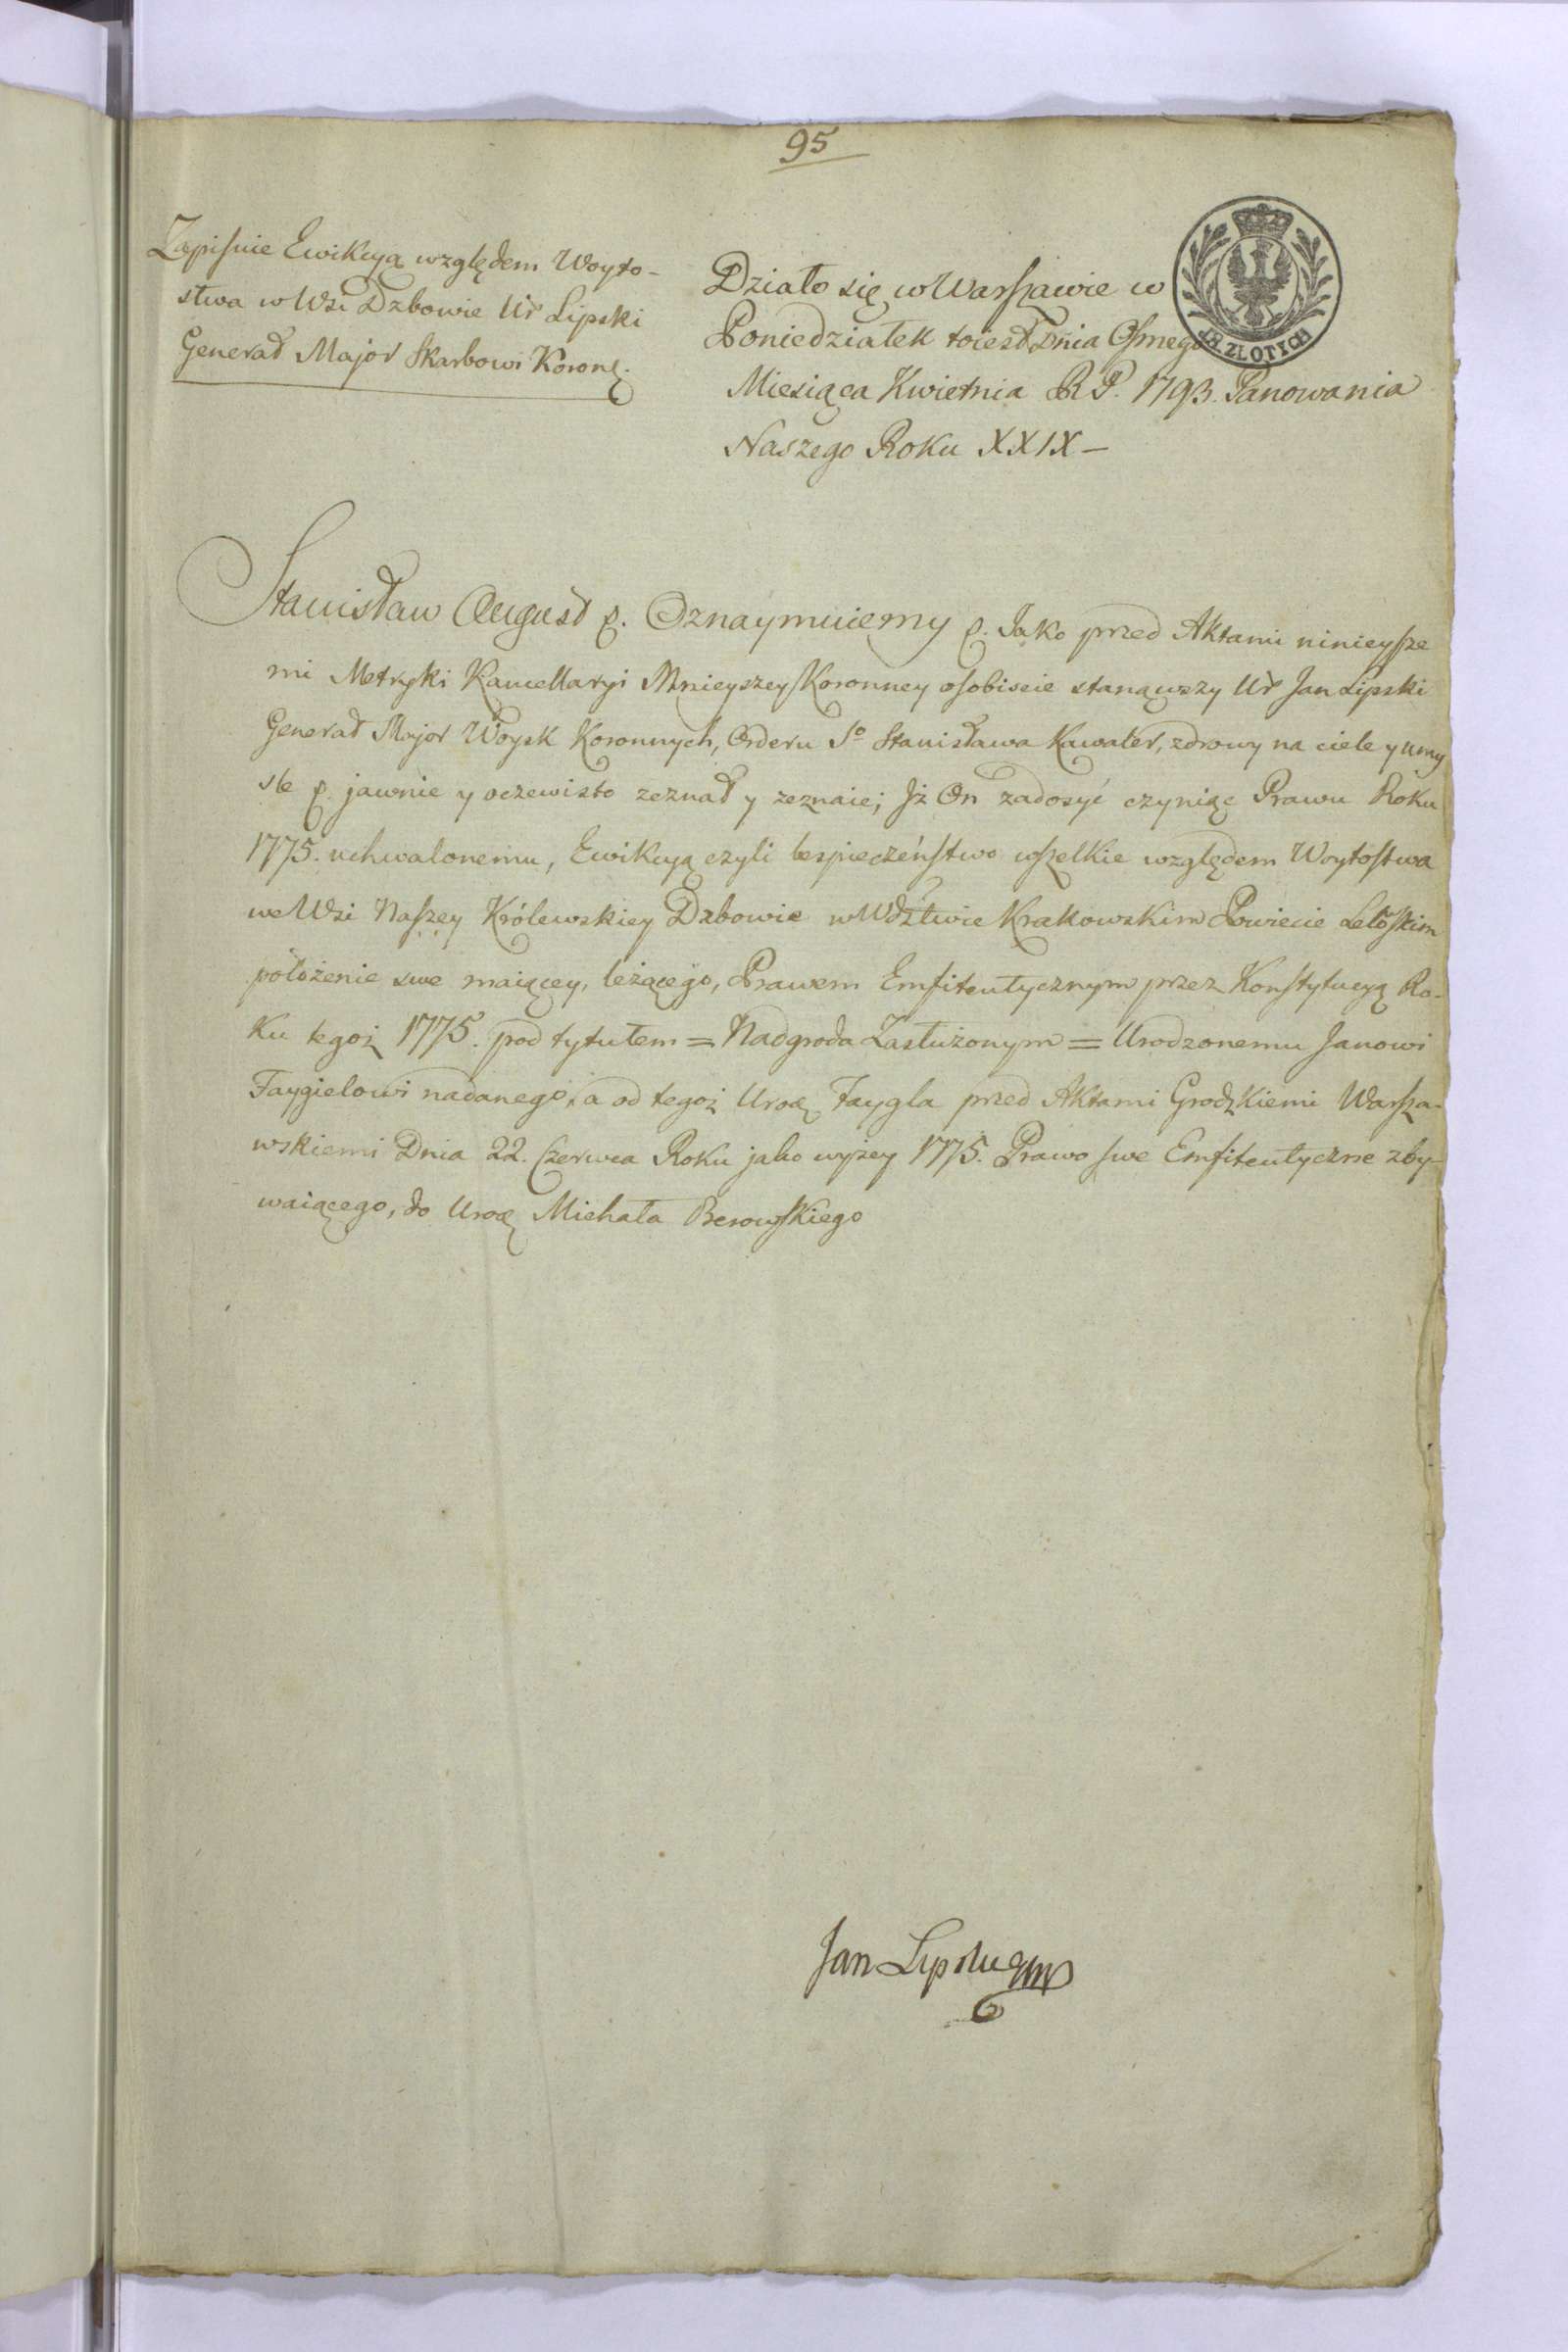 95
Zapisuie Ewikcyą względem Woyto-
stwa w Wsi Dzbowie Ur Lipski
Generał Major Skarbowi Koronę.
Działo się w Warszawie w
Poniedziałek toiest Dnia Osmego
Miesiąca Kwietnia RP. 1793. Panowania
Naszego Roku XXIX –
ZŁOTYCH
Stanisław August p. Oznaymuiemy p. Jako przed Aktami ninieysze
mi Metryki Kancellaryi Mnieyszey Koronney osobiscie stanąwszy Ur Jan Lipski
Generał Major Woysk Koronnych, Orderu So Stanisława Kawaler, zdrowy na ciele y umy
sle p. jawnie y oczewisto zeznał y zeznaie; Jż On zadosyć czyniąc Prawu Roku
1775. uchwalonemu, Ewikcyą czyli bespieczeństwo wszelkie względem Woytostwa
we Wsi Naszey Królewskiey Dzbowie w Wdztwie Krakowskim Powiecie Leloskim
położenie swe maiącey, leżącego, Prawem Emfiteutycznym przez Konstytucyą Ro-
ku tegoż 1775. pod tytułem = Nadgroda Zasłużonym = Urodzonemu Janowi
Faygielowi nadanego, a od tegoż Urodz Faygla przed Aktami Grodzkiemi Warsza-
wskiemi Dnia 22. Czerwca Roku jako wyżey 1775. Prawo swe Emfiteutyczne zby-
waiącego, do Urodz Michała Berowskiego
Jan Lipski